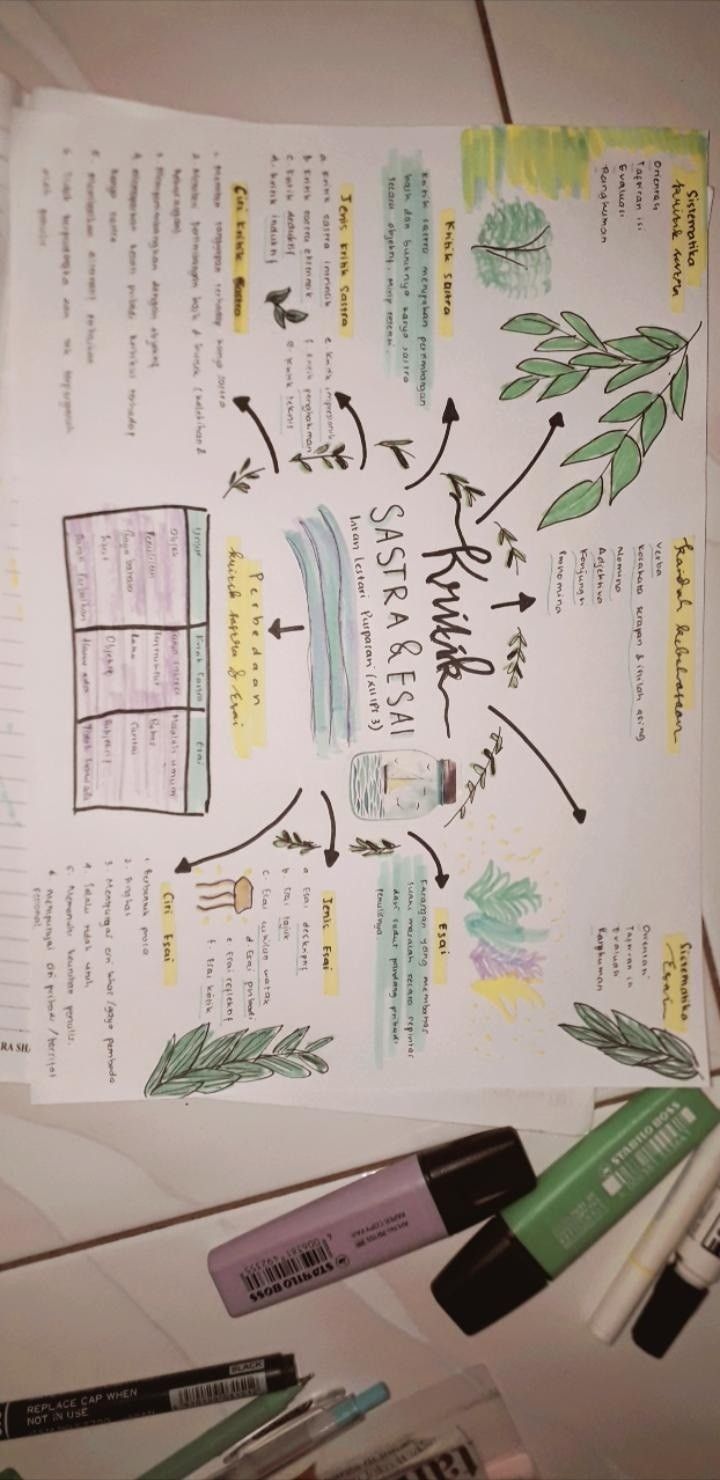 Kritik
SASTRA & ESAI
Intan Lestari Purparani (XII IPS 3)
Sistematika
kritik sastra
Orientasi
Tafsiran isi
Evaluasi
Rangkuman
Kaidah kebahasaan
Verba
Kosakata serapan & istilah asing
Nomina
Adjektiva
Konjungsi
Pronomina
Sistematika
Esai
Orientasi
Tafsiran isi
Evaluasi
Rangkuman
Kritik Sastra
Kritik sastra merupakan pertimbangan
baik dan buruknya karya sastra
secara objektif,
Jenis Kritik Sastra
a. Kritik sastra intrinsik
b. Kritik sastra ekstrinsik
c. Kritik deduktif
d. Kritik induktif
e. Kritik impresionik
f. Kritik penghakiman
g. Kritik teknis
Ciri Kritik Sastra
1. Memberi tanggapan terhadap karya sastra
2. Memberi pertimbangan baik & buruk (kelebihan &
kekurangan)
3.
4. kesan pribadi kritikus terhadap
karya sastra
5. Memberikan alternatif perbaikan
6. Tidak berprasangka dan tak terpengaruh
oleh penulis
Perbedaan
kritik sastra & Esai
Unsur
Kritik Sastra
Esai
Objek
Karya sastra
Masalah umum
Penulisan
Terstruktur
Bebas
Gaya bahasa
Baku
Santai
Sifat
Objektif
Subjektif
Harus ada
Tidak harus ada
Esai
Karangan yang membahas
suatu masalah secara sepintas
dari sudut pandang pribadi
penulisnya
Jenis Esai
a. Esai deskriptif
b. Esai tajuk
c. Esai cukilan watak
d. Esai pribadi
e. Esai reflektif
f. Esai kritik
Ciri Esai
1. Berbentuk prosa
2. Singkat
3. Mempunyai ciri khas/gaya pembeda
4. Selalu tidak utuh
5. Memenuhi keutuhan penulis.
6. Mempunyai ciri pribadi/bersifat
personal
RA SIL
STABILO BOSS
STABILO BOSS
4 006381 492355
BLACK
REPLACE CAP WHEN
NOT IN USE